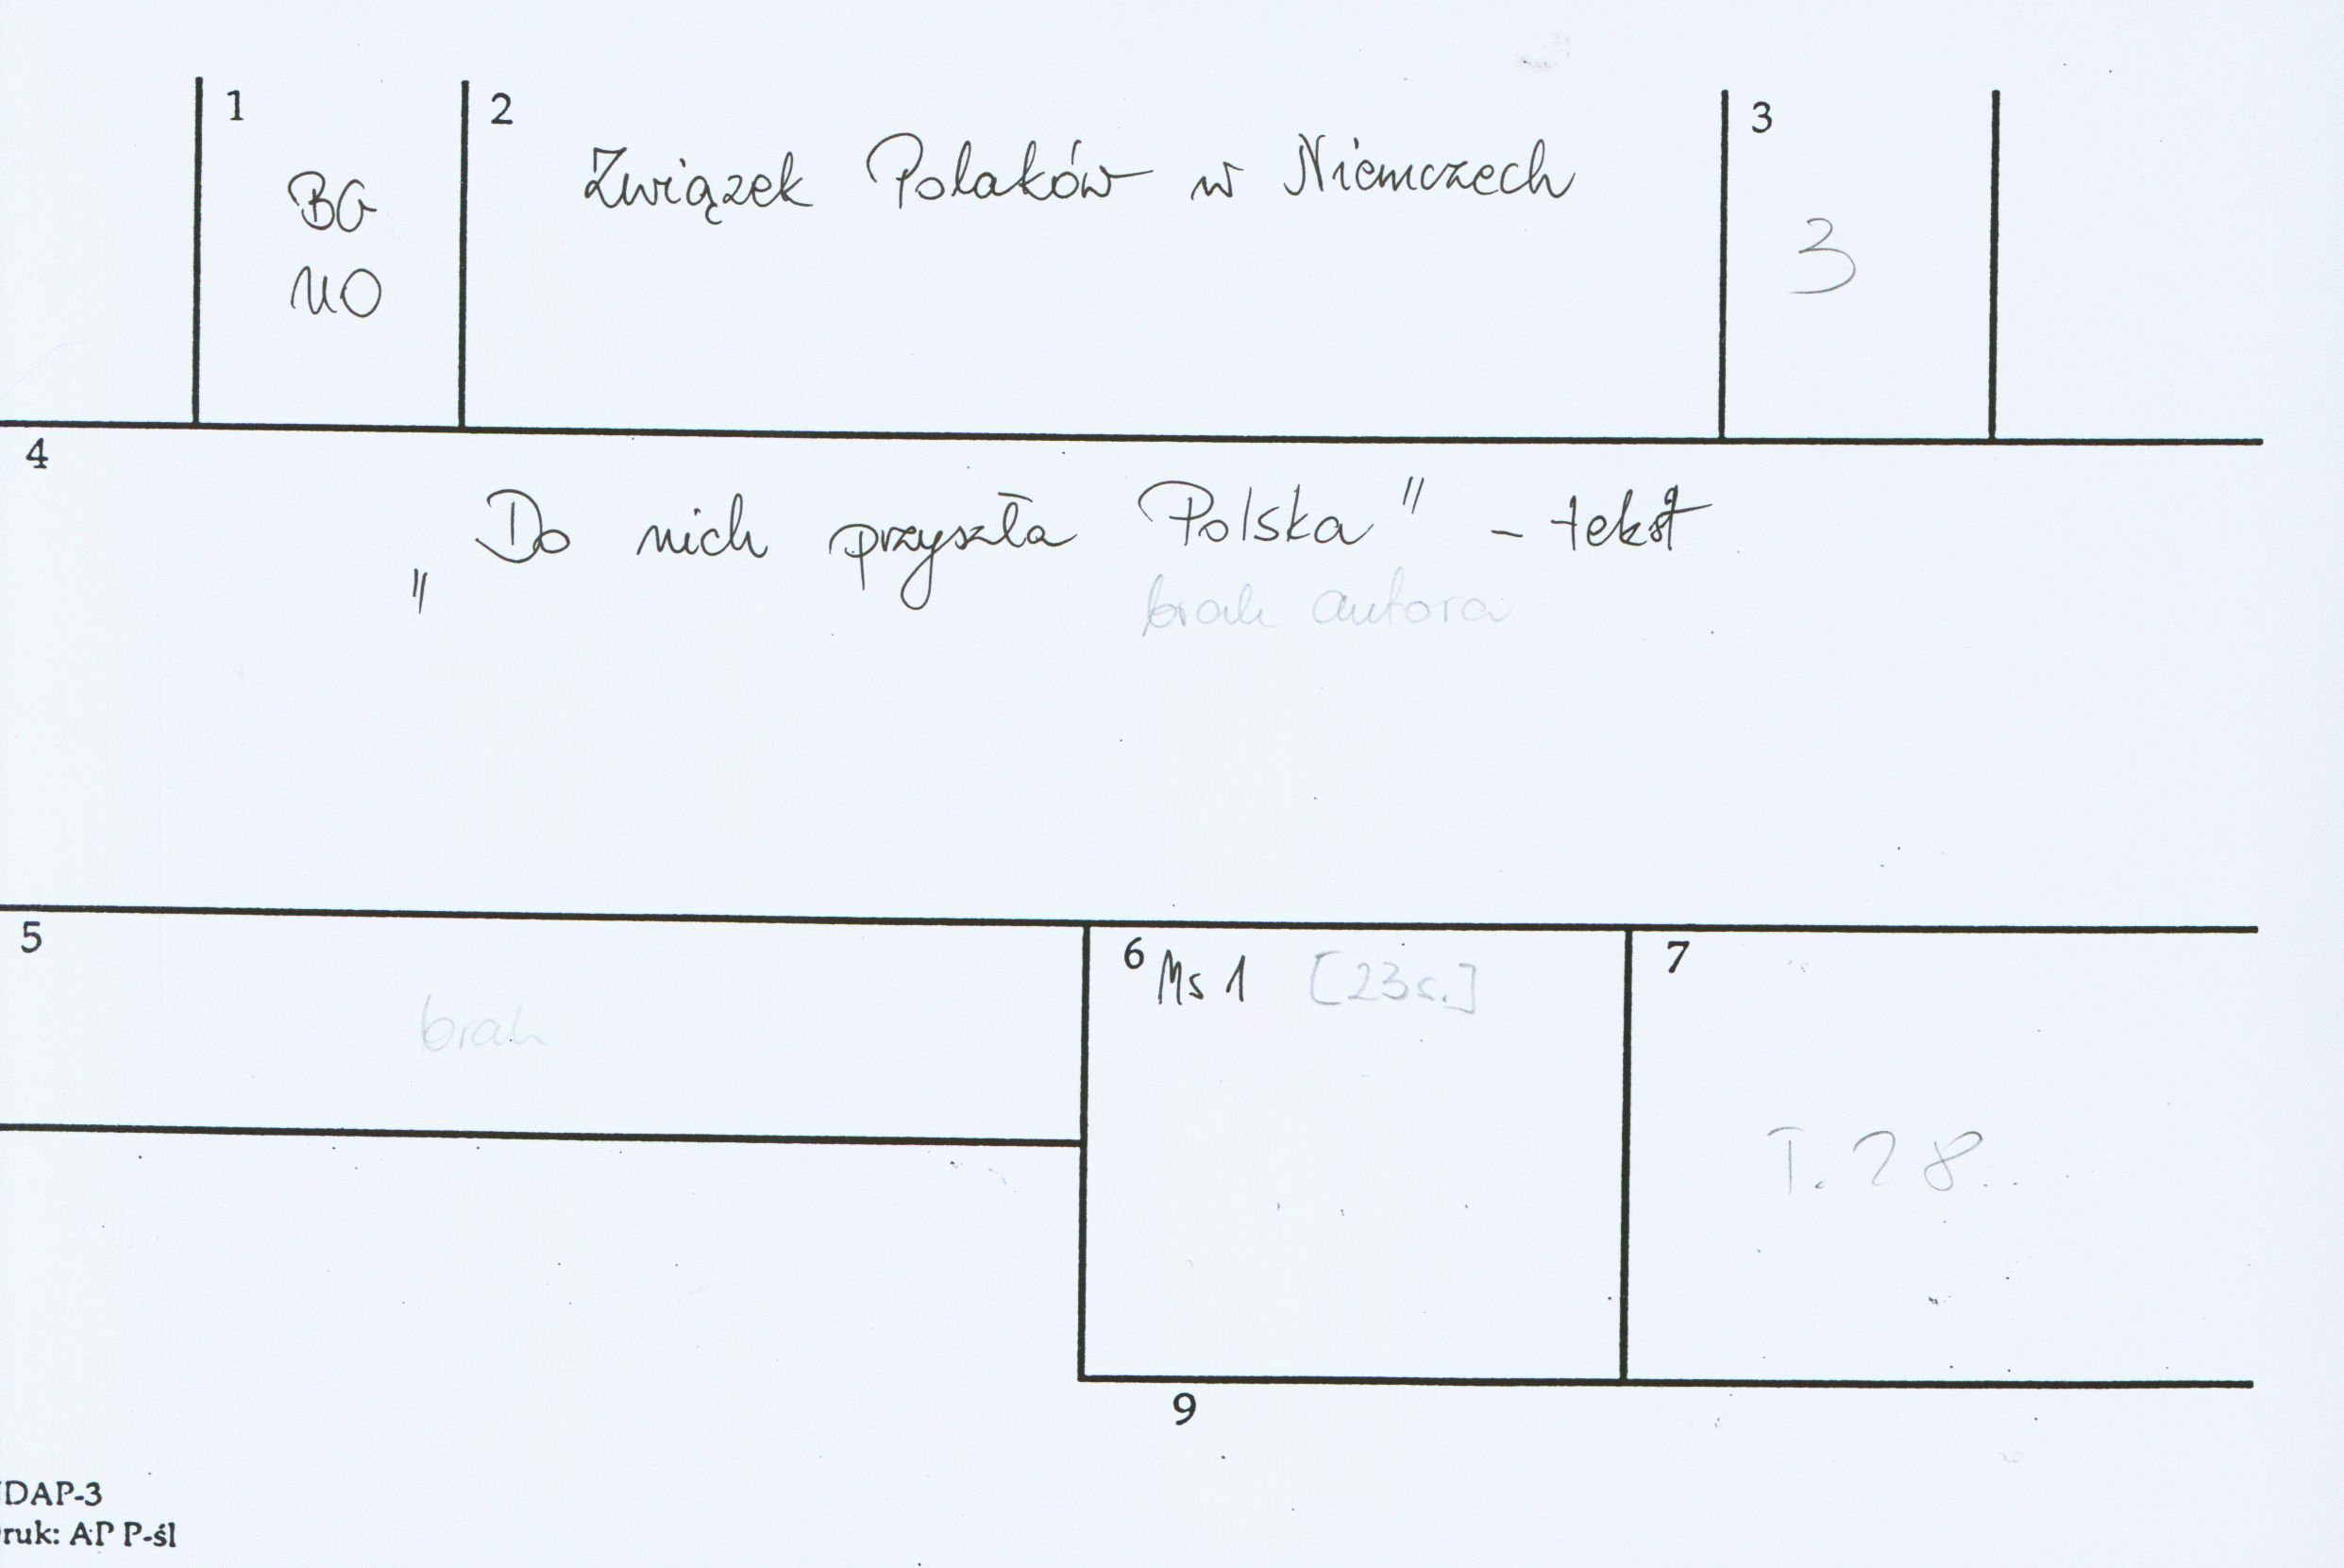 1
BG
UO
2
Związek Polaków w Niemczech
3
3
4
„Do nich przyszła Polska" - tekst
brak autora
5
brak
6 Ms 1 [23s.]
7
T. 28..
9
DAP-3
ruk: AP P-śl